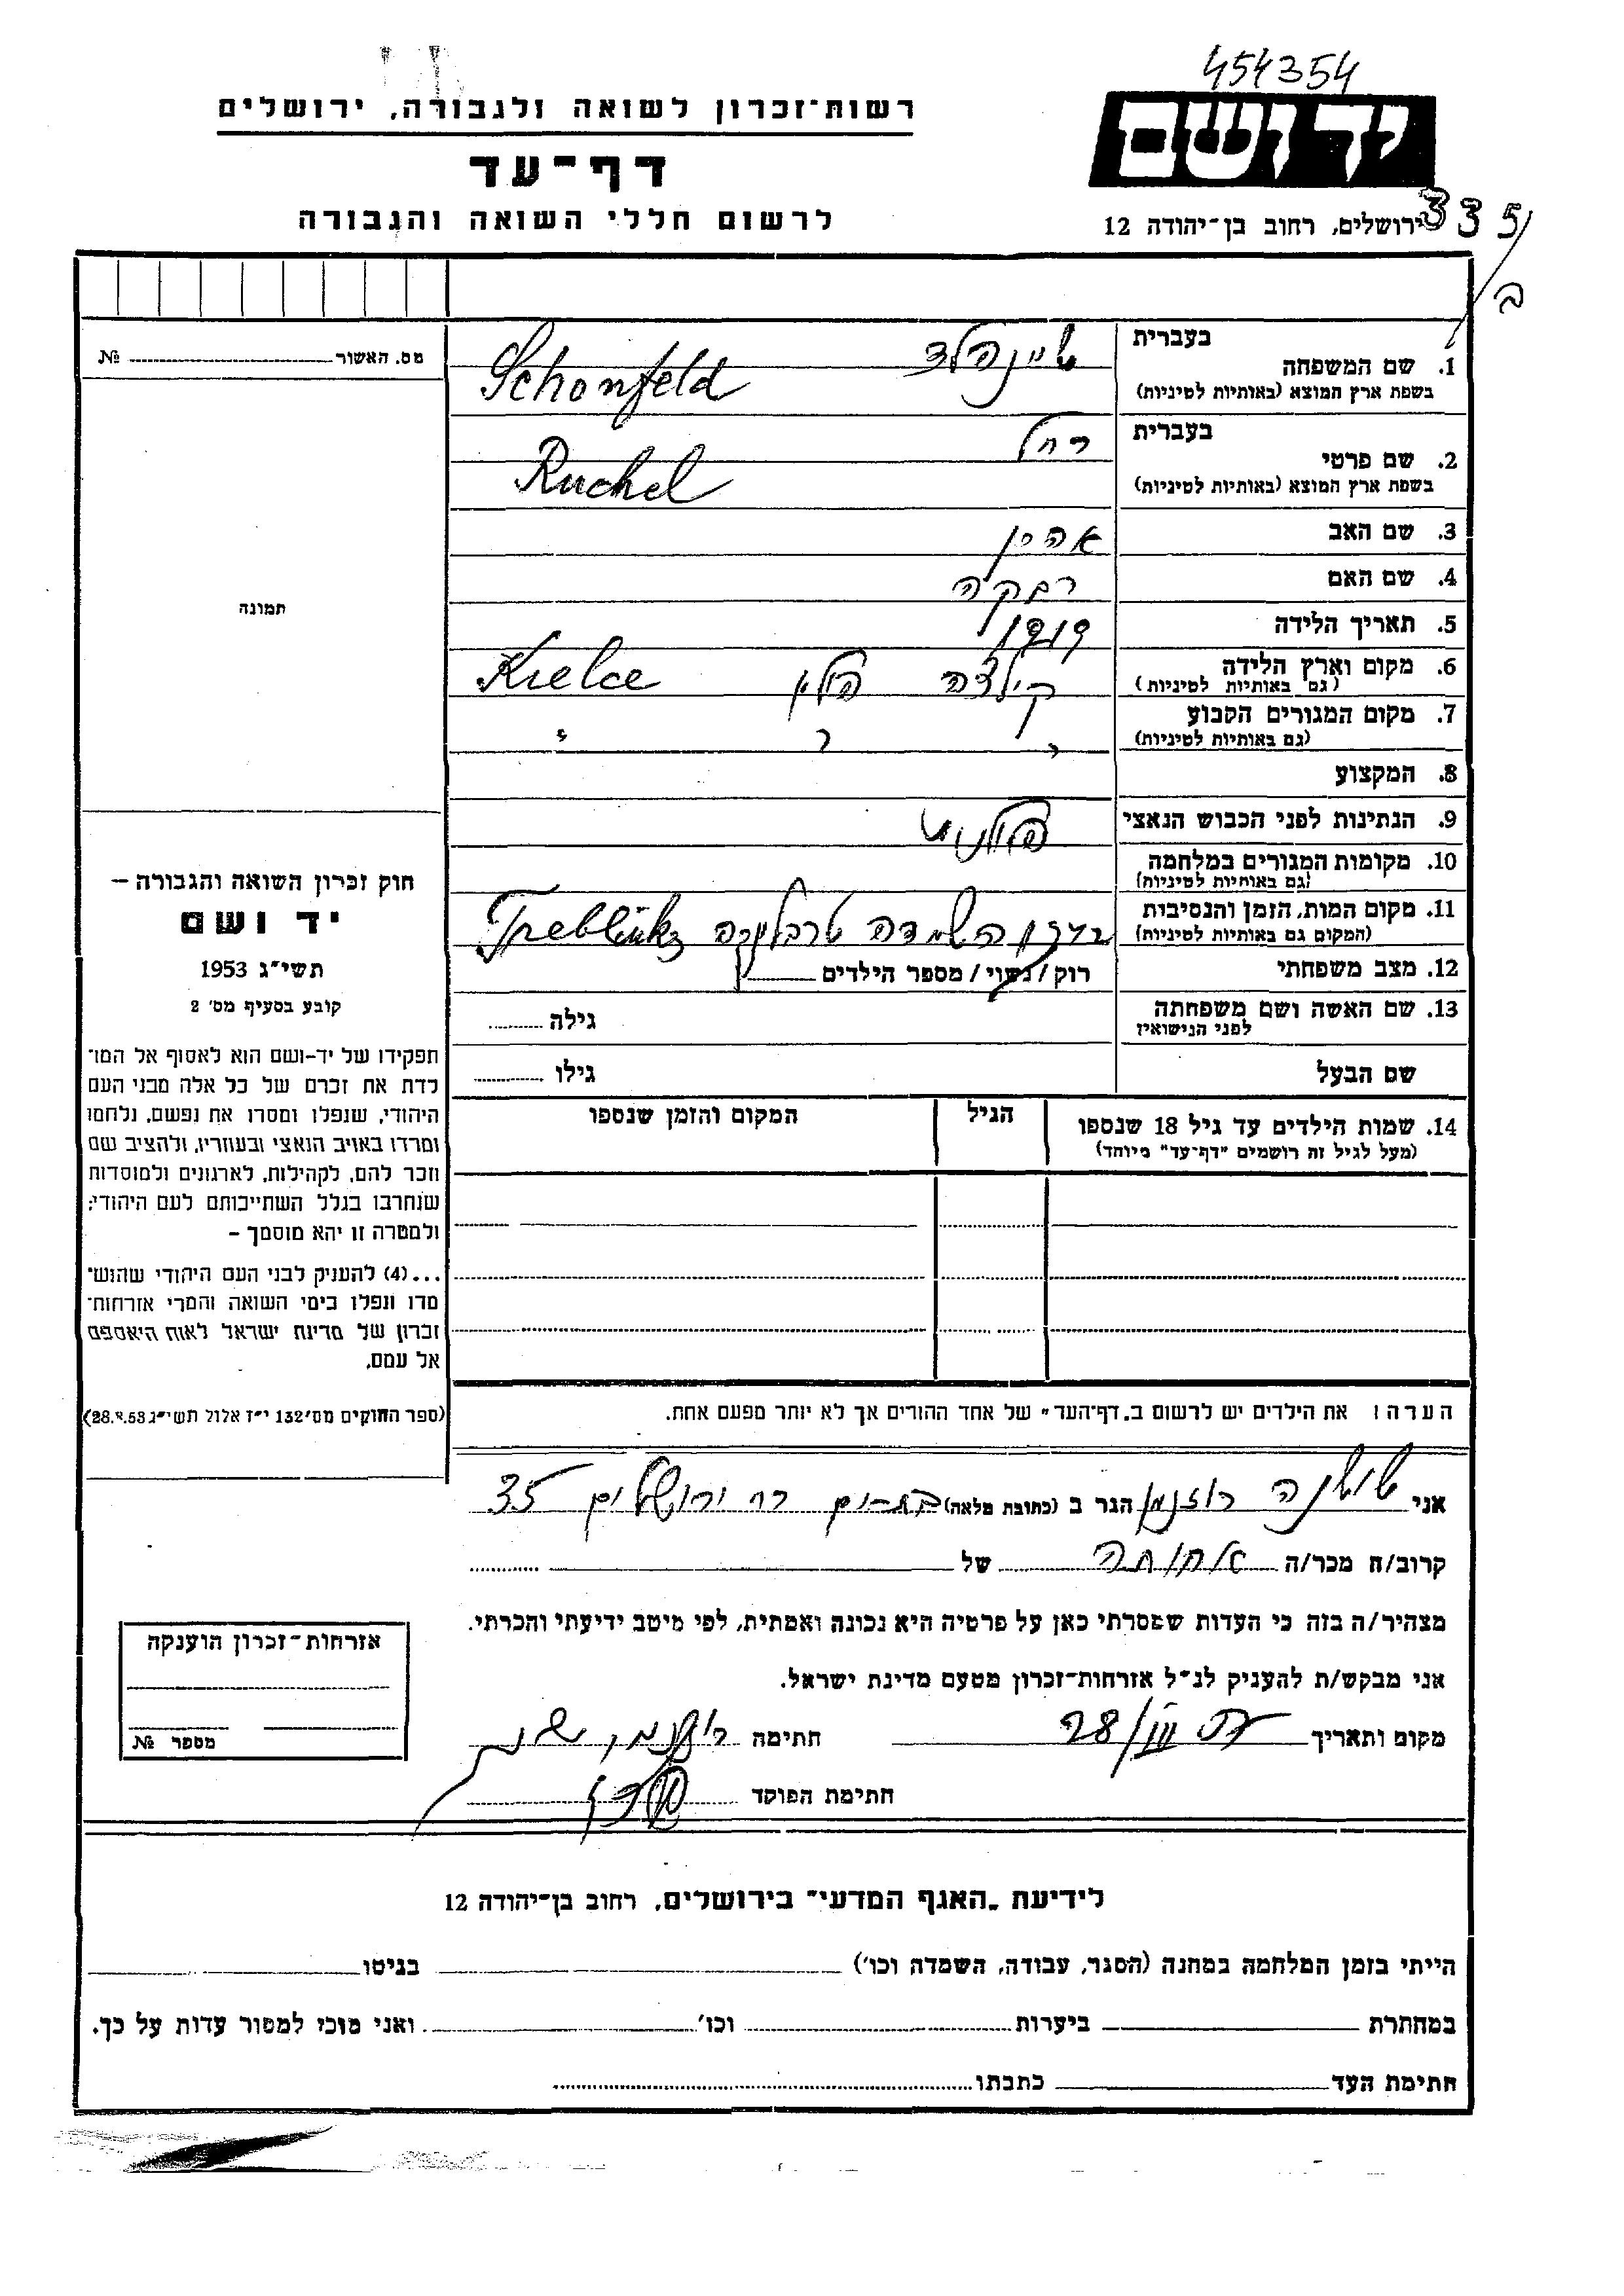 454354
רשות־זכרון לשואה ולגבורה, ירושלים
יד ושם
דף־עד
לרשום חללי השואה והגבורה
ירושלים, רחוב בן־יהודה 12
335/ב
מס. האשור № 
בעברית
1. שם המשפחה
בשפת ארץ המוצא (באותיות לטיניות)
שיינפלד Schonfeld
בעברית
2. שם פרטי
בשפת ארץ המוצא (באותיות לטיניות)
רחל Ruchel
3. שם האב
אהרן
4. שם האם
רבקה
5. תאריך הלידה
1919
6. מקום וארץ הלידה
(גם באותיות לטיניות)
קילצה פולין Kielce
7. מקום המגורים הקבוע
(גם באותיות לטיניות)
" " "
8. המקצוע
9. הנתינות לפני הכבוש הנאצי
פולנית
10. מקומות המגורים במלחמה
(גם באותיות לטיניות)
11. מקום המות, הזמן והנסיבות
(המקום גם באותיות לטיניות)
השמדה טרבלינקה Treblinka
12. מצב משפחתי
רוק / נשוי / מספר הילדים
13. שם האשה ושם משפחתה
לפני הנישואין
גילה
שם הבעל
גילו
14. שמות הילדים עד גיל 18 שנספו
(מעל לגיל זה רושמים "דף־עד" מיוחד)
הגיל
המקום והזמן שנספו
הערה: את הילדים יש לרשום ב"דף־העד" של אחד ההורים אך לא יותר מפעם אחת.
תמונה
חוק זכרון השואה והגבורה –
יד ושם
תשי"ג 1953
קובע בסעיף מס' 2
תפקידו של יד-ושם הוא לאסוף אל המו־
לדת את זכרם של כל אלה מבני העם
היהודי, שנפלו ומסרו את נפשם, נלחמו
ומרדו באויב הנאצי ובעוזריו, ולהציב שם
וזכר להם, לקהילות, לארגונים ולמוסדות
שנחרבו בגלל השתייכותם לעם היהודי;
ולמטרה זו יהא מוסמך –
...(4) להעניק לבני העם היהודי שהוש־
מדו ונפלו בימי השואה והמרי אזרחות־
זכרון של מדינת ישראל לאות היאספם
אל עמם.
(ספר החוקים מס' 132 י"ז אלול תשי"ג 28.8.53)
אני שושנה רוזנמן הגר ב (כתובת מלאה) בת-ים רח ירושלים 35
קרוב/ה מכר/ה אחותה של
מצהיר/ה בזה כי העדות שמסרתי כאן על פרטיה היא נכונה ואמתית, לפי מיטב ידיעתי והכרתי.
אני מבקש/ת להעניק לנ"ל אזרחות־זכרון מטעם מדינת ישראל.
מקום ותאריך 28/III חתימה רוזנמן
חתימת הפוקד
אזרחות־זכרון הוענקה
מספר №
לידיעת "האגף המדעי" בירושלים, רחוב בן־יהודה 12
הייתי בזמן המלחמה במחנה (הסגר, עבודה, השמדה וכו') בגיטו
במחתרת ביערות וכו' ואני מוכן למסור עדות על כך.
חתימת העד כתבתו